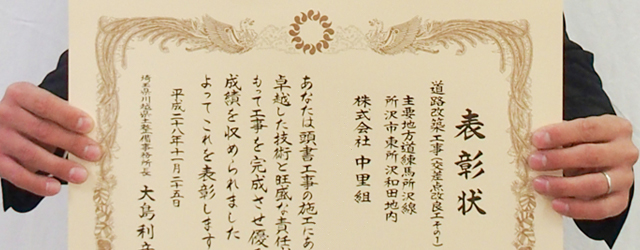 表彰状
道路改築工事(交差点改良工その1)
主要地方道練馬所沢線
所沢市東所沢和田地内
株式会社 中里組
あなたは頭書工事の施工にあ
卓越した技術と旺盛な責任
もって工事を完成させ優
成績を収められました
よってこれを表彰します
平成二十八年十一月二十五日
埼玉県川越県土整備事務所長 大島利